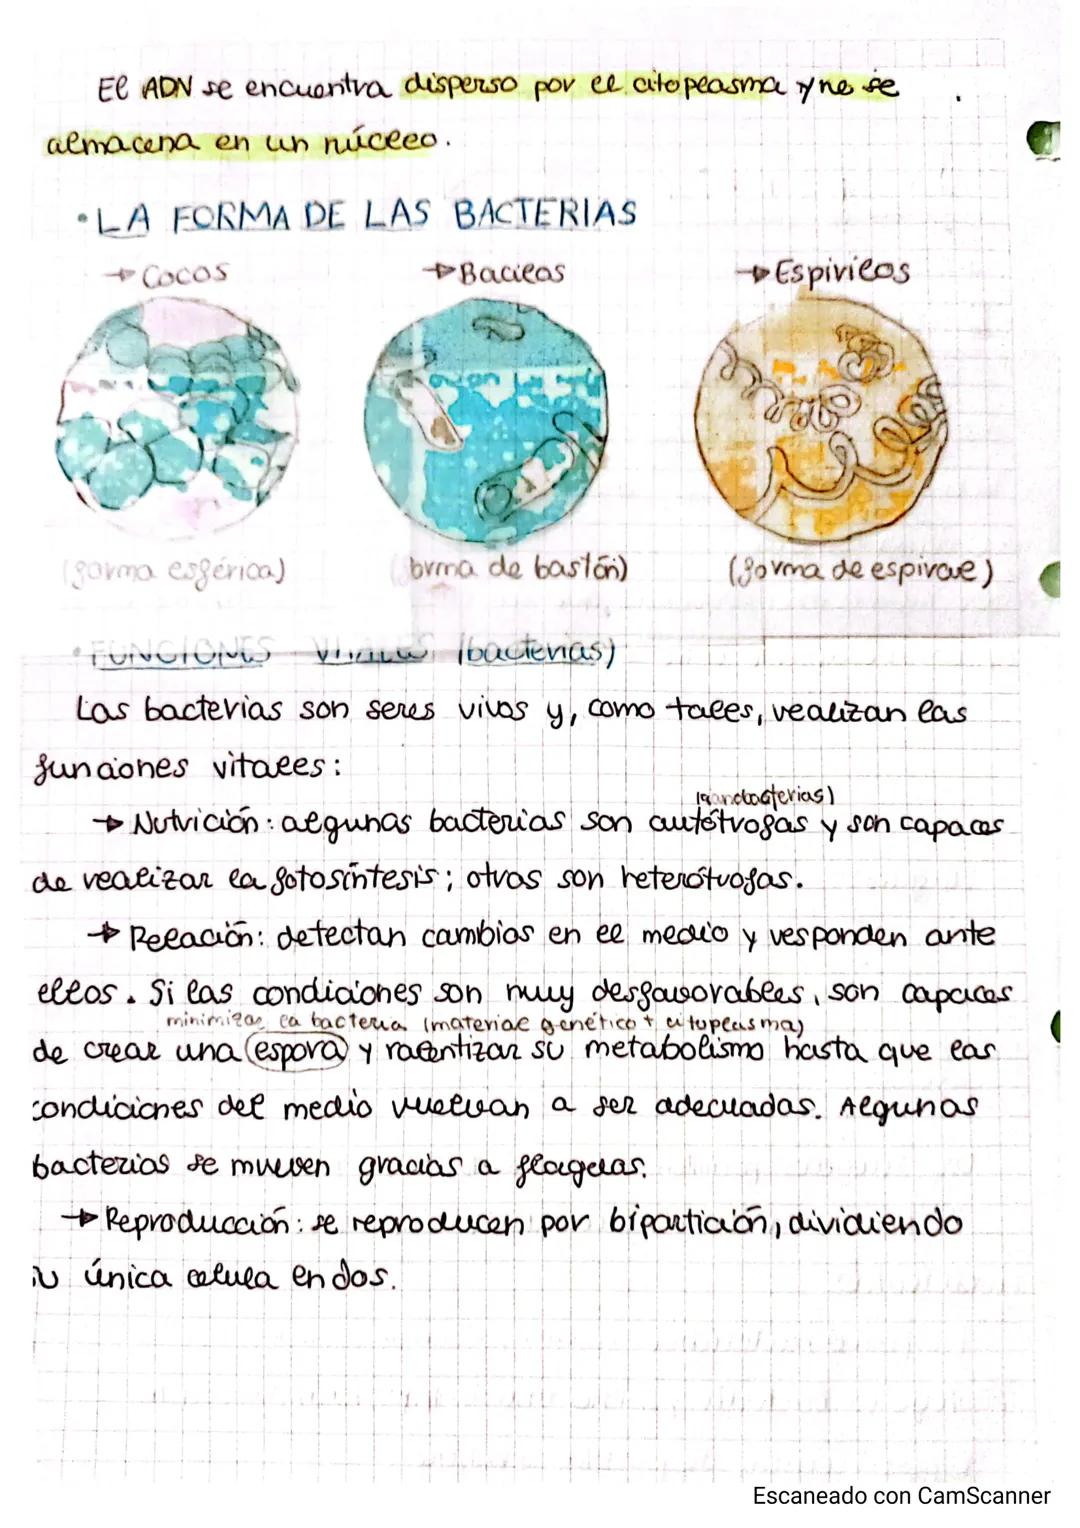 El ADN se encuentra disperso por el citoplasma y no se
almacena en un núcleo.
• LA FORMA DE LAS BACTERIAS
→ Cocos → Bacilos → Espirilos
(forma esférica) (forma de bastón) (forma de espiral)
• FUNCIONES VITALES (bacterias)
Las bacterias son seres vivos y, como tales, realizan las
funciones vitales:
(cianobacterias)
→ Nutrición: algunas bacterias son autótrofas y son capaces
de realizar la fotosíntesis; otras son heterótrofas.
→ Relación: detectan cambios en el medio y responden ante
ellos. Si las condiciones son muy desfavorables, son capaces
minimizar la bacteria (material genético + citoplasma)
de crear una espora y ralentizar su metabolismo hasta que las
condiciones del medio vuelvan a ser adecuadas. Algunas
bacterias se mueven gracias a flagelos.
→ Reproducción: se reproducen por bipartición, dividiendo
su única célula en dos.
Escaneado con CamScanner